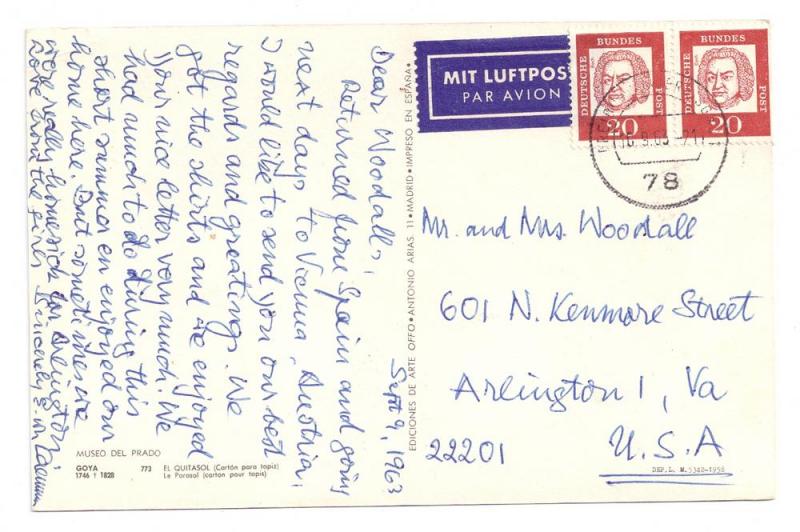 Sept 9, 1963
Dear Woodalls,
Returned from Spain and going
next days to Vienna, Austria,
I would like to send you our best
regards and greetings. We
got the shirts and we enjoyed
your nice letter very much. We
had much to do during this
short summer en enjoyed our
home here. But sometimes we
were really homesick for Arlington.
Love from the girls Sincerely
MUSEO DEL PRADO
GOYA 773 EL QUITASOL (Cartón para tapiz)
1746 † 1828 Le Parasol (carton pour tapis)
EDICIONES DE ARTE OFFO • ANTONIO ARIAS, 11 • MADRID • IMPRESO EN ESPAÑA •
MIT LUFTPOST
PAR AVION
DEUTSCHE BUNDES POST
20
DEUTSCHE BUNDES POST
20
78
Mr. and Mrs. Woodall
601 N. Kenmore Street
Arlington 1, Va
22201 U.S.A
DEP. L. M. 5342-1958